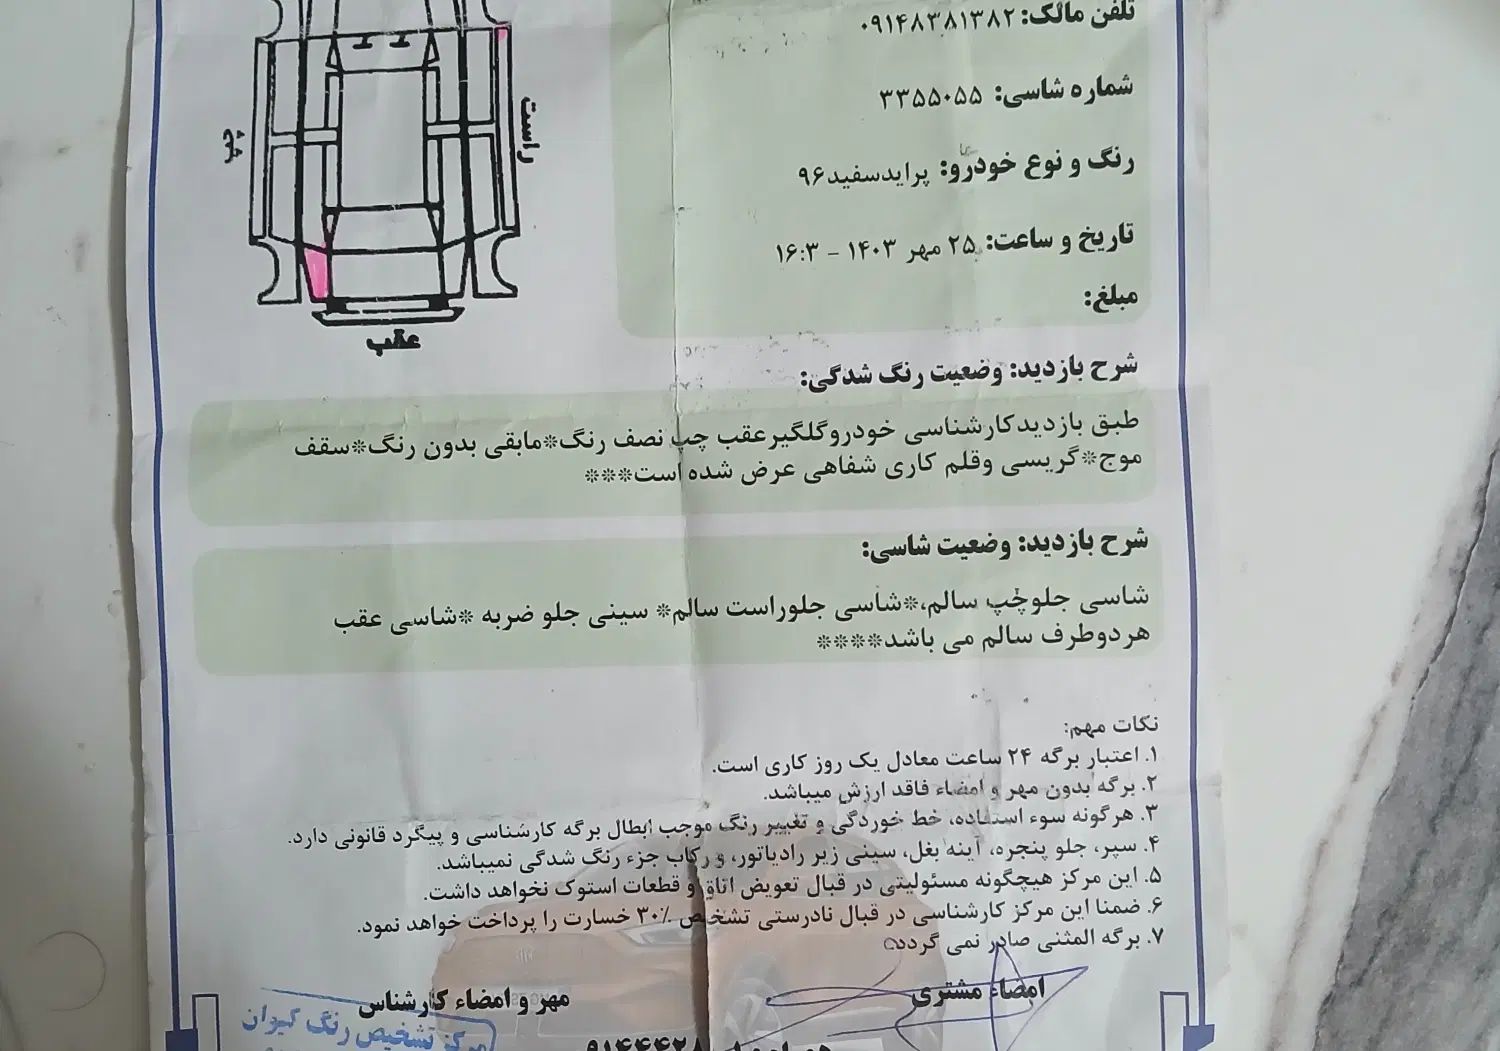 تلفن مالک: ۰۹۱۴۸۳۸۱۳۸۲
شماره شاسی: ۳۳۵۵۰۵۵
رنگ و نوع خودرو: پرایدسفید۹۶
تاریخ و ساعت: ۲۵ مهر ۱۴۰۳ - ۱۶:۳
مبلغ:
راست
چپ
عقب
شرح بازدید: وضعیت رنگ شدگی:
طبق بازدیدکارشناسی خودروگلگیرعقب چپ نصف رنگ*مابقی بدون رنگ*سقف
موج*گریسی وقلم کاری شفاهی عرض شده است***
شرح بازدید: وضعیت شاسی:
شاسی جلوچپ سالم،*شاسی جلوراست سالم* سینی جلو ضربه *شاسی عقب
هردوطرف سالم می باشد****
نکات مهم:
۱. اعتبار برگه ۲۴ ساعت معادل یک روز کاری است.
۲. برگه بدون مهر و امضاء فاقد ارزش میباشد.
۳. هرگونه سوء استفاده، خط خوردگی و تغییر رنگ موجب ابطال برگه کارشناسی و پیگرد قانونی دارد.
۴. سپر، جلو پنجره، آینه بغل، سینی زیر رادیاتور، و رکاب جزء رنگ شدگی نمیباشد.
۵. این مرکز هیچگونه مسئولیتی در قبال تعویض اتاق و قطعات استوک نخواهد داشت.
۶. ضمنا این مرکز کارشناسی در قبال نادرستی تشخیص ۳۰٪ خسارت را پرداخت خواهد نمود.
۷. برگه المثنی صادر نمی گردد
امضاء مشتری
مهر و امضاء کارشناس
مرکز تشخیص رنگ کیوان